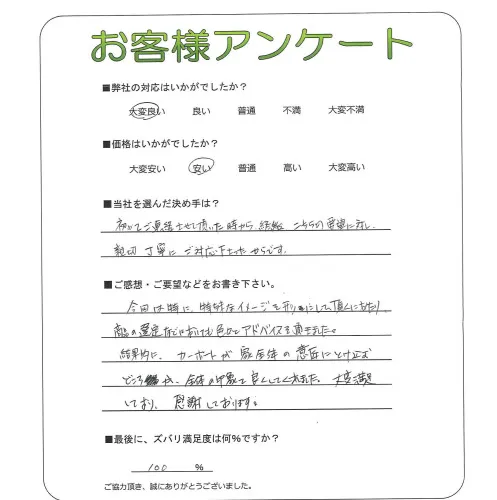 お客様アンケート
■弊社の対応はいかがでしたか？
大変良い 良い 普通 不満 大変不満
■価格はいかがでしたか？
大変安い 安い 普通 高い 大変高い
■当社を選んだ決め手は？
初めてご連絡させて頂いた時から、こちらの要望に対し、
親切 丁寧に ご対応下さったからです。
■ご感想・ご要望などをお書き下さい。
今回は特に、特殊なイメージを形にして頂くにあたり、
商品の選定 色々とアドバイスを頂きました。
結果的に、カーポートが家全体の意匠にとけ込む
どころか、全体の印象を良くしてくれました。大変満足
しており、感謝しております。
■最後に、ズバリ満足度は何%ですか？
100 %
ご協力頂き、誠にありがとうございました。